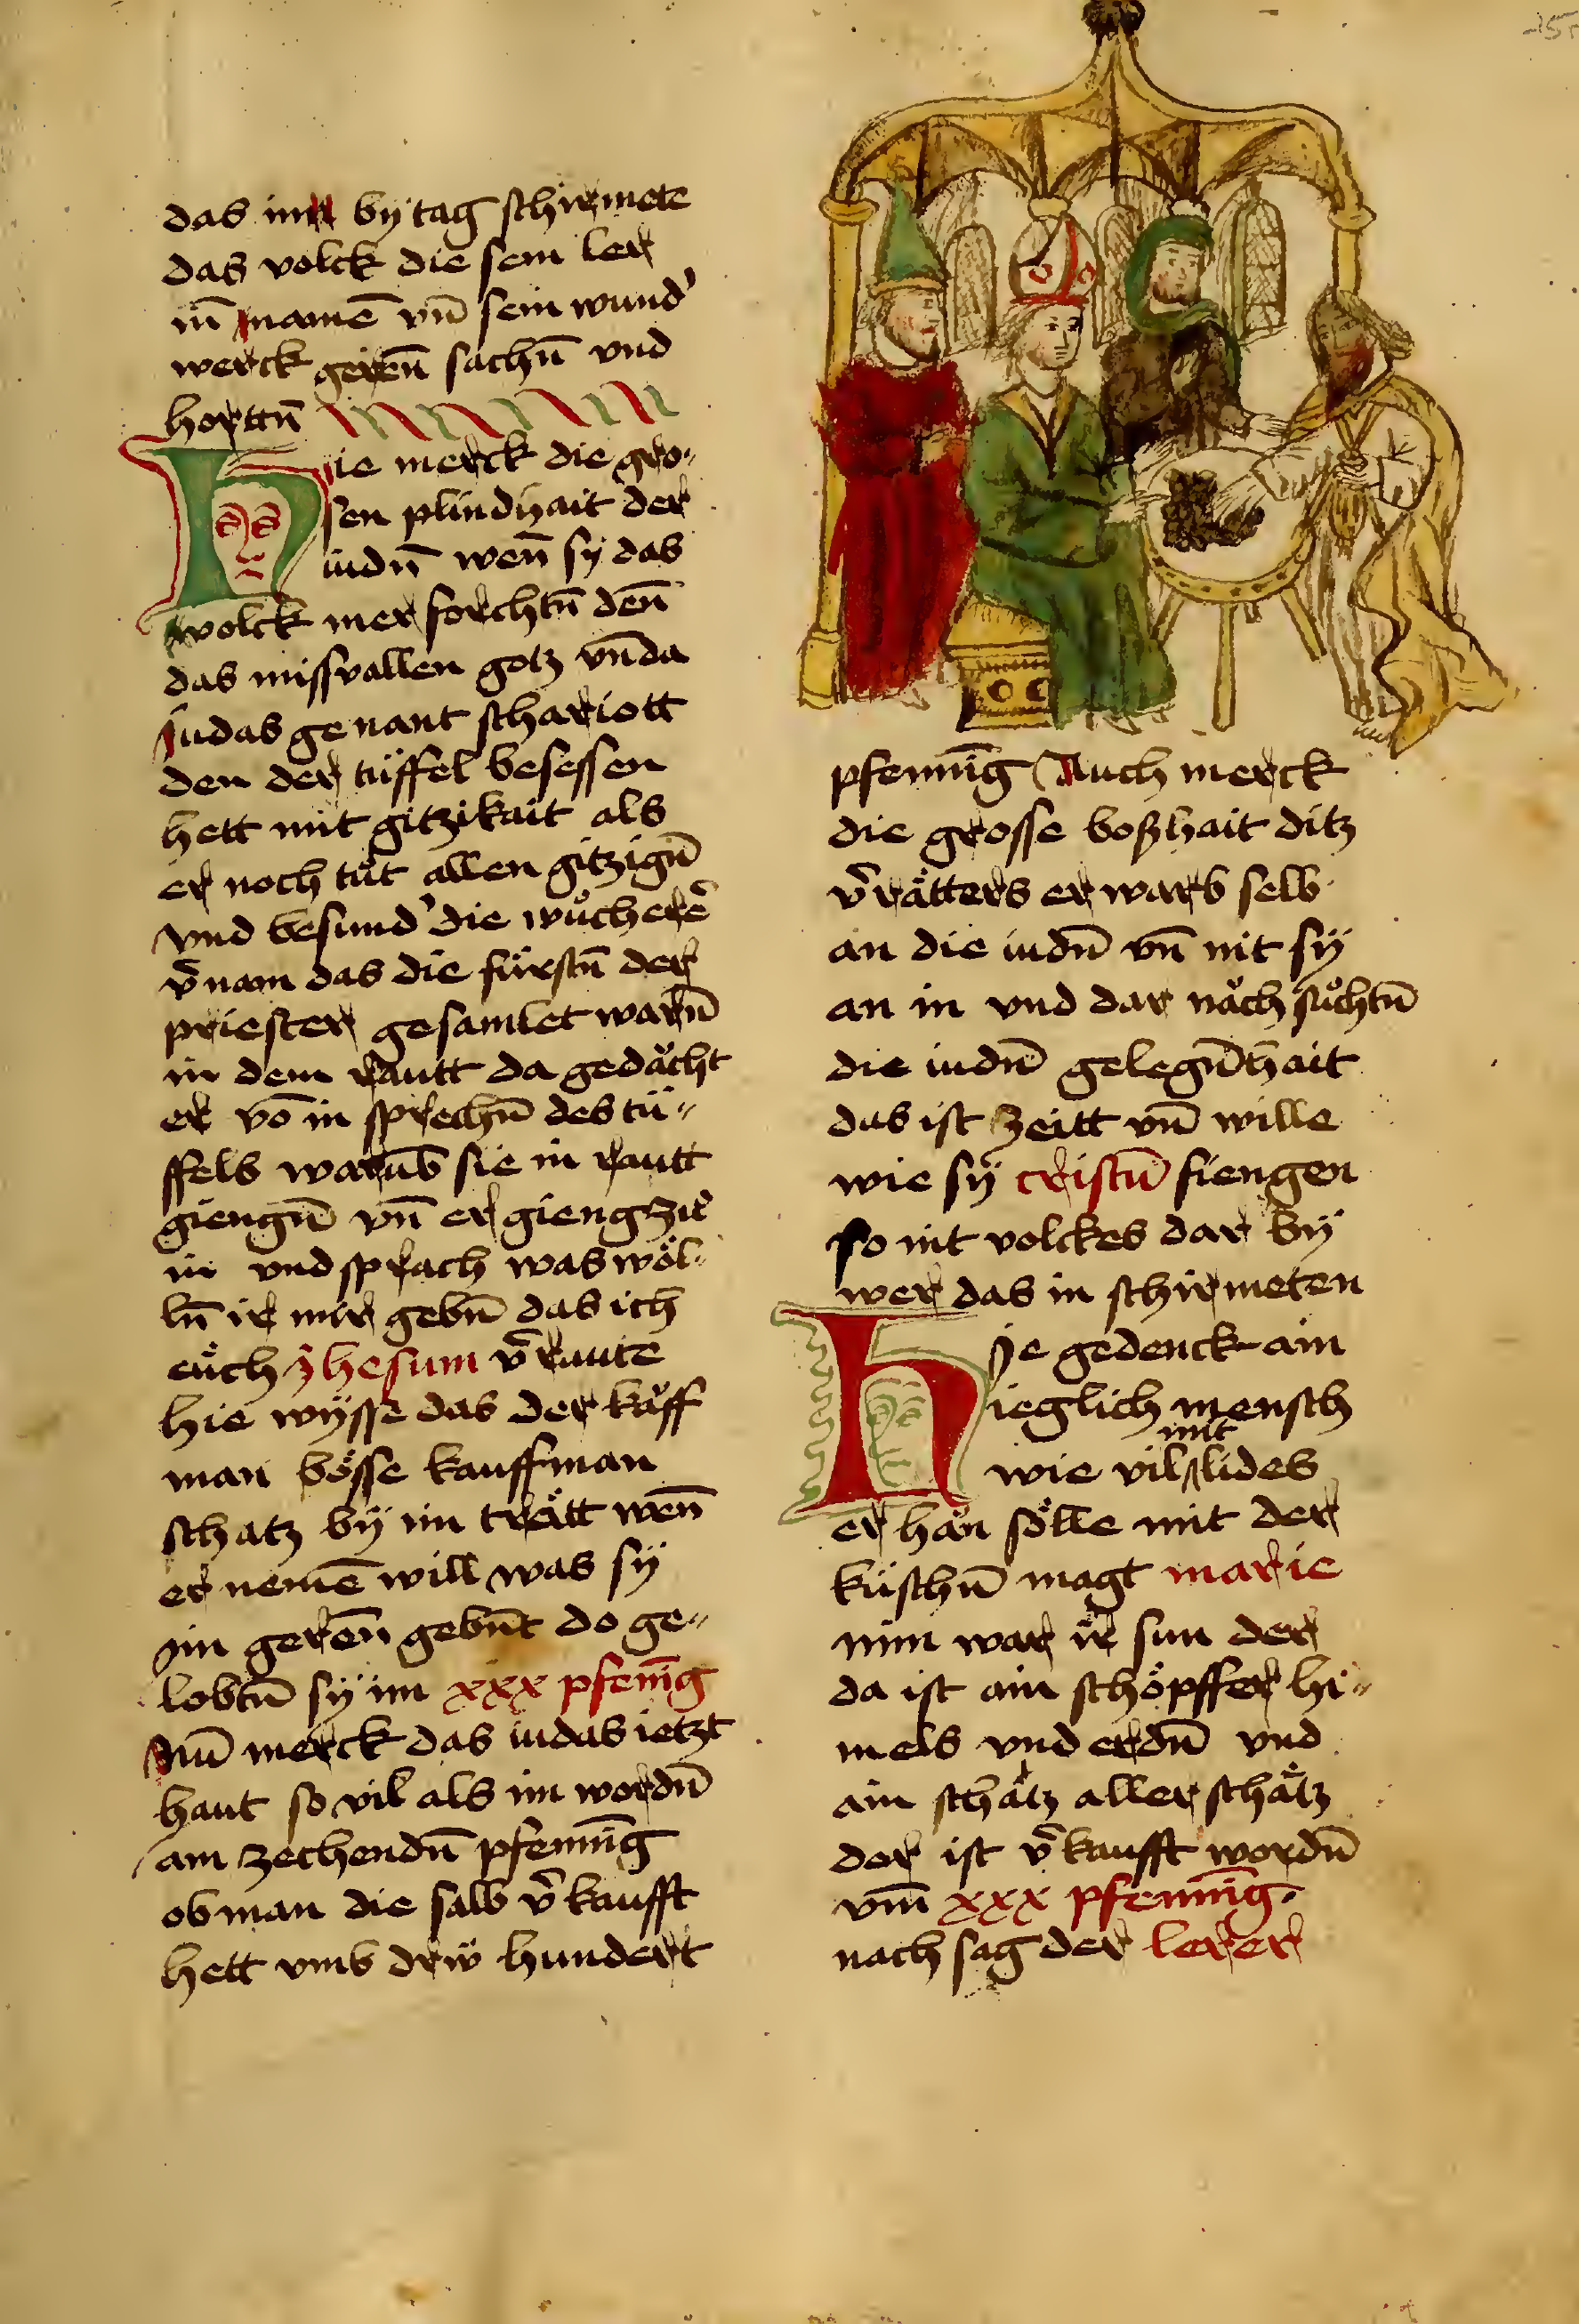 das im by tag schirmete
das volck die sein ler
in namē vn̄ sein wund'
werck geren̄ sachn̄ vnd
hortn̄
Hie merck die gro-
sen plindhait der
iudn̄ wen̄ sy das
volck mer forchtn̄ den̄
das missvallen gotz vn̄ da
Judas genant schariott
den der tüffel besessen
hett mit gitzikait als
er noch tůt allen gitzign̄
vnd besund' die wůcherē
v̄nam das die fürstn̄ der
priester gesamlet warn̄
in dem rautt da gedăcht
er vō in sprechn̄ des tü-
ffels warūb sie in rautt
giengn̄ vn̄ er gieng zů
in vnd sprach was wöl-
ln̄ ir mir gebn̄ das ich
eüch jhesum v̄raute
hie wysse das der kăff
man bösse kauffman
schatz by im trätt wen̄
er nemē will was sy
im geren̄ gebn̄t do ge-
lobtn̄ sy im xxx pfenīg
Nū merck das iudas ietzt
haut so vil als im wordn̄
am zechendn̄ pfennīg
ob man die salb v̄kaufft
hett vmb drü hundert
pfennīg Auch merck
die grosse boßhait ditz
v̄rätters er warb selb
an die iudn̄ vn̄ nit sy
an in vnd dar năch sůchtn̄
die iudn̄ gelegn̄hait
das ist zeitt vn̄ wille
wie sy cristū fiengen
so nit volckes dar by
wer das in schirmeten
Hie gedenck ain
ieglich mensch
mit
wie vil lides
er hăn sölle mit der
küschn̄ magt marie
nim war ir sun der
da ist ain schöpffer hi-
mels vnd erdn̄ vnd
ain schătz aller schätz
der ist v̄kaufft wordn̄
vm̄ xxx pfennīg.
nach sag der lerer